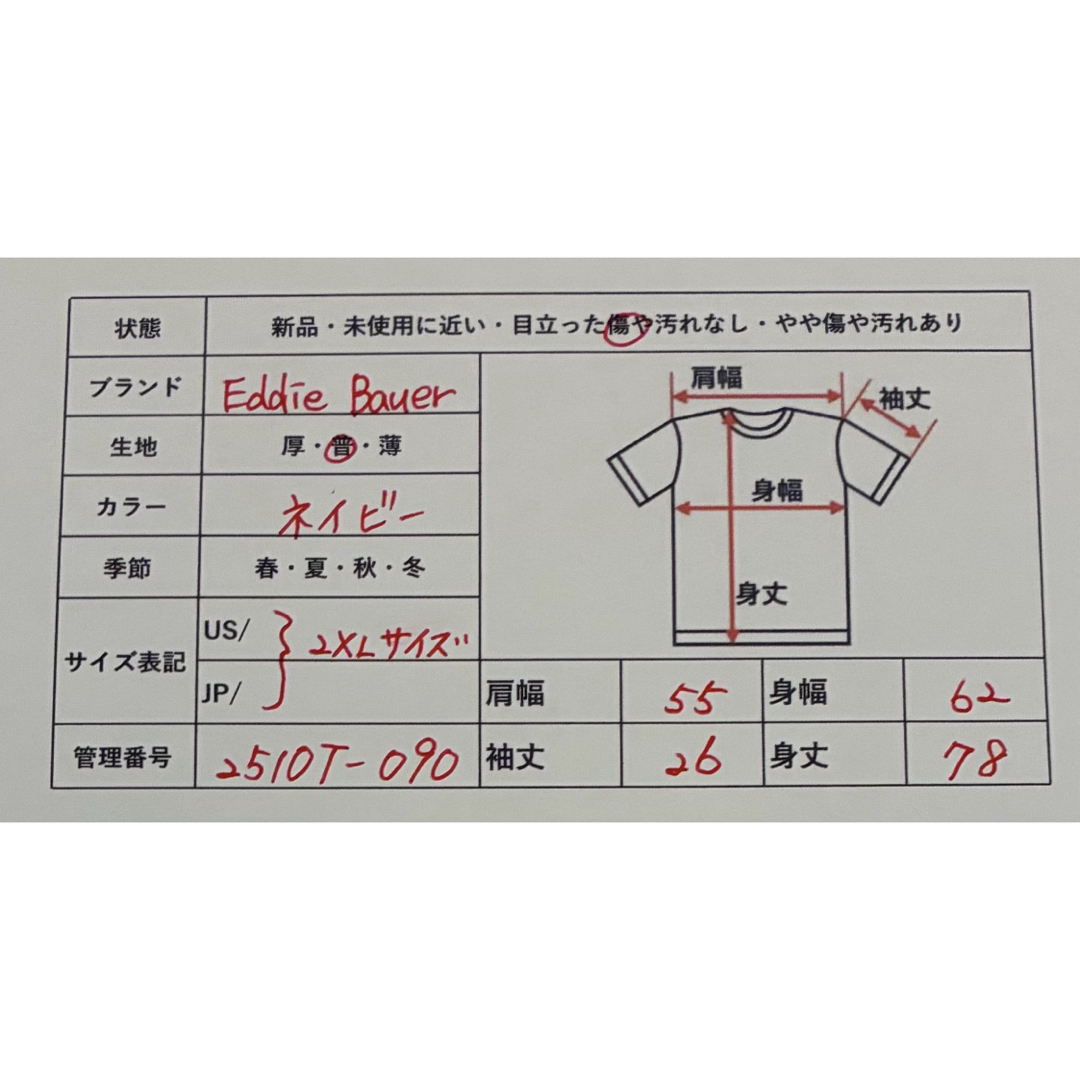 状態 新品・未使用に近い・目立った傷や汚れなし・やや傷や汚れあり
ブランド Eddie Bauer
生地 厚・普・薄
カラー ネイビー
季節 春・夏・秋・冬
サイズ表記 US/ JP/ 2XLサイズ
管理番号 2510T-090
肩幅
袖丈
身幅
身丈
肩幅 55 身幅 62
袖丈 26 身丈 78